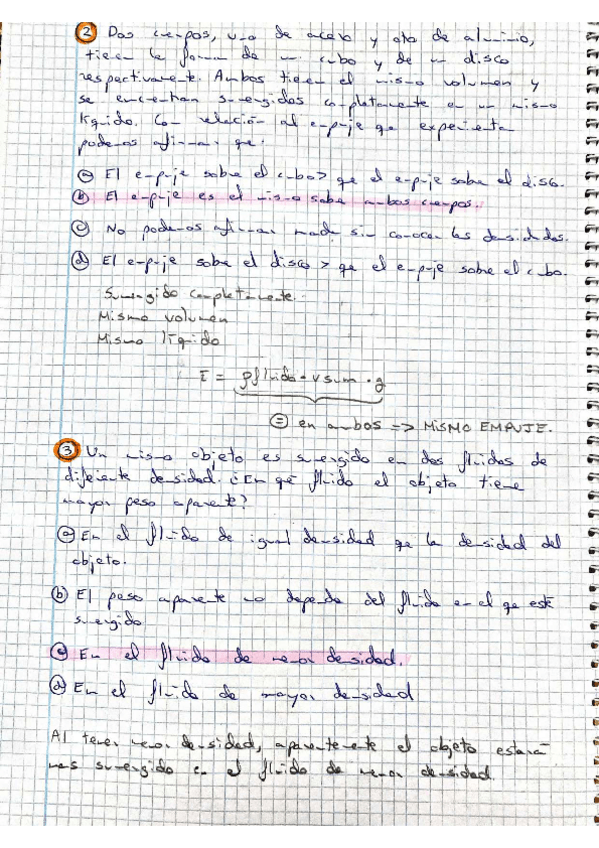 ② Dos cuerpos, uno de acero y otro de aluminio,
tienen la forma de un cubo y de un disco
respectivamente. Ambos tienen el mismo volumen y
se encuentran sumergidos completamente en un mismo
líquido. Con relación al empuje que experimenta
podemos afirmar que:
ⓐ El empuje sobre el cubo > que el empuje sobre el disco.
ⓑ El empuje es el mismo sobre ambos cuerpos.
ⓒ No podemos afirmar nada sin conocer las densidades.
ⓓ El empuje sobre el disco > que el empuje sobre el cubo.
Sumergido completamente.
Mismo volumen
Mismo líquido
E = ρfluido · Vsum · g
= en ambos => MISMO EMPUJE.
③ Un mismo objeto es sumergido en dos fluidos de
diferente densidad. ¿En qué fluido el objeto tiene
mayor peso aparente?
ⓐ En el fluido de igual densidad que la densidad del
objeto.
ⓑ El peso aparente no depende del fluido en el que esté
sumergido
ⓒ En el fluido de menor densidad.
ⓓ En el fluido de mayor densidad
Al tener menor densidad, aparentemente el objeto estará
más sumergido en el fluido de menor densidad.